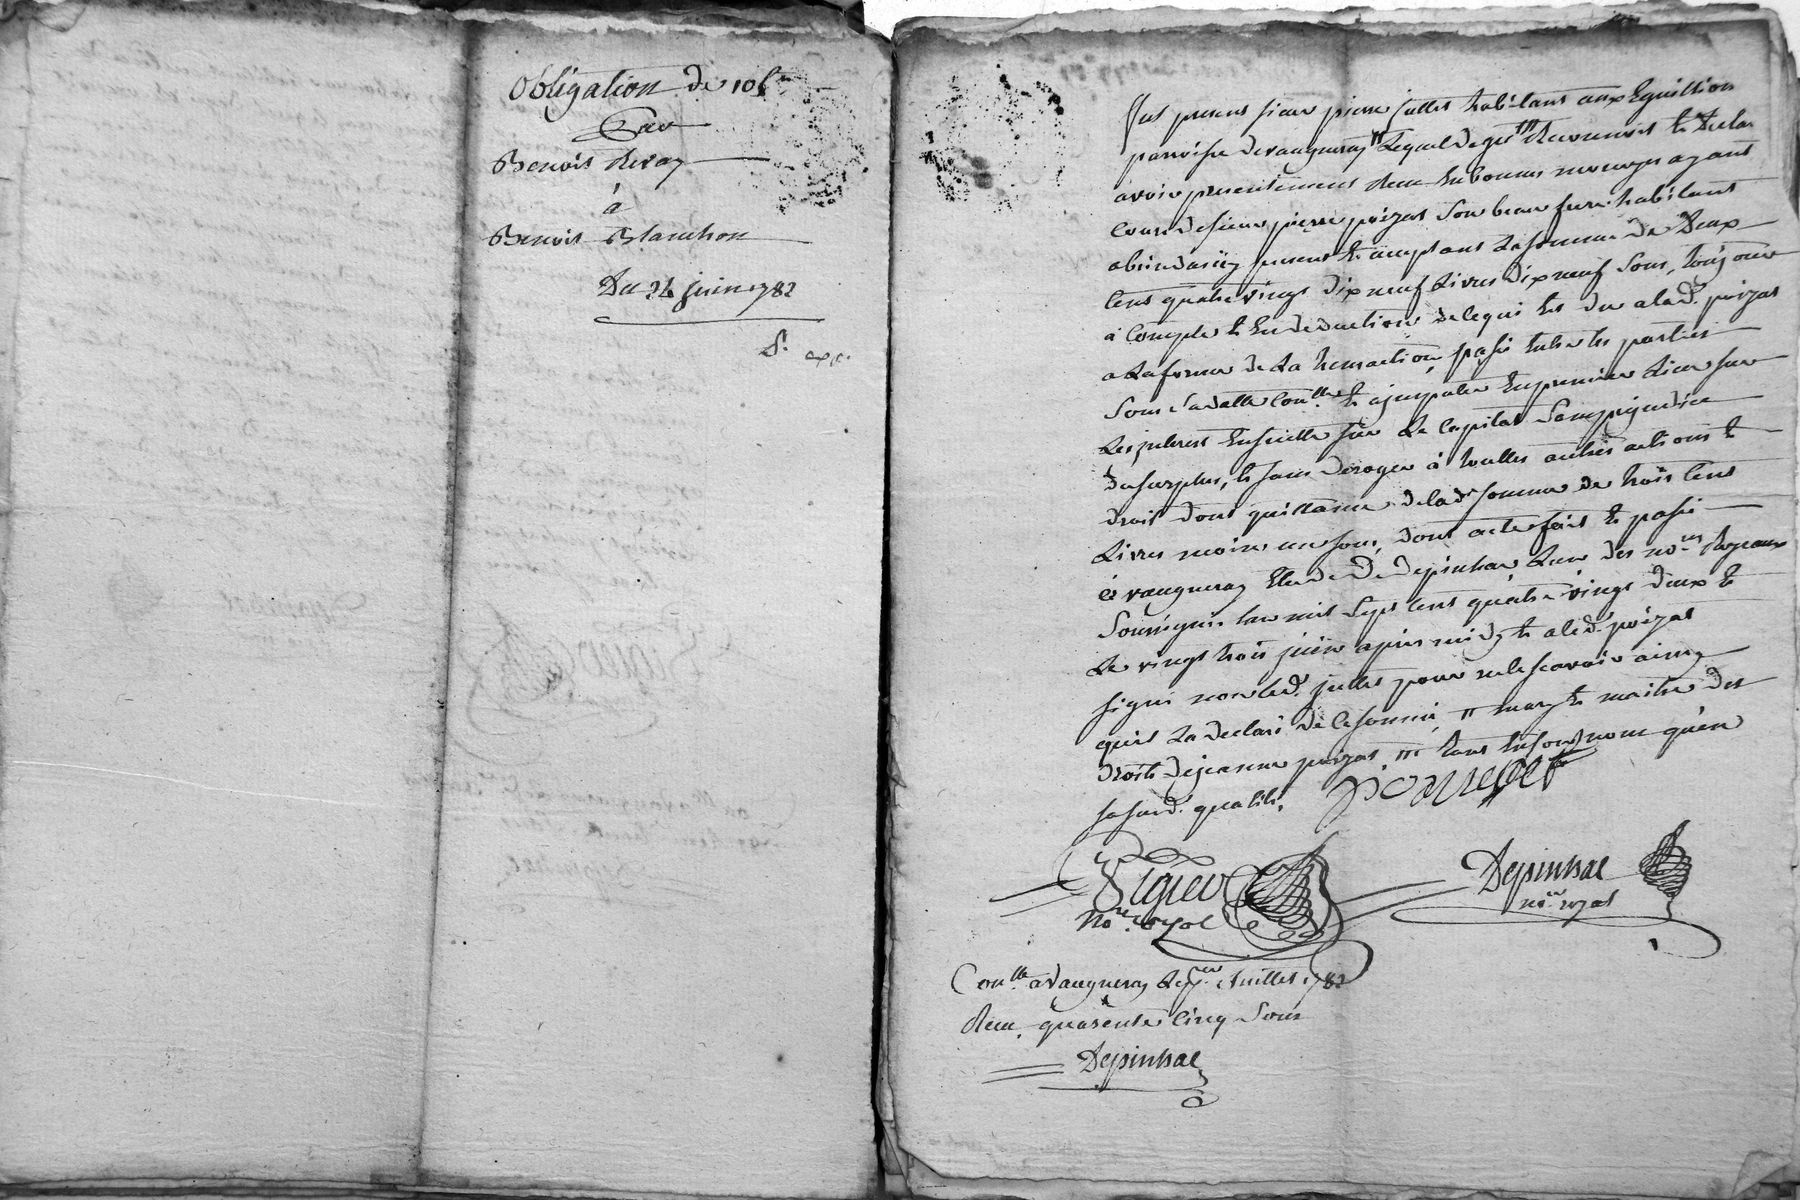 Obligation de 105ᵗᵗ
Par
Benoit Revay
à
Benoit Blanchon
Du 24 juin 1782
Fut present sieur pierre jullet habitant aux Eguillion
parroisse de vaugneray // Lequel de gré /// Reconnoit et declare
avoir presentement Receu en bonnes monoyes ayant
cours de sieur pierre poizat son beau frere habitant
present et acceptant La somme de Deux
Cent quatre vingt dix neuf Livres dix neuf sous, toujours
à Compte et En deduction de ce qui Est du aud. poizat
a La forme de La transaction passé Entre les parties
sous sa datte Conllée. et ajmputer En premier Lieu sur
Les jnterest Ensuitte sur Le Capital sans prejudice
du surplus, et sans deroger à touttes autres actions et
droit dont quittance de lad. somme de trois Cent
Livres moins un sous, dont acte fait et passé
à vaugneray Etude de Depinhac L'un des nores. Royaux
soussignés L'an mil sept Cent quatre vingt deux et
Le vingt trois juin apres midy et a led. poizat
signé non led. jullet pour ne le scavoir ainsy
qu'il La declaré de ce sommé, // mary et maitre des
droits de jeanne poizat, /// tant En son nom qu'en
sa susd. qualité.
Vignes
Nore. royal
Depinhac
nore. royal
Conllé. a Vaugneray Le per. Juillet 1782
Receu quarente Cinq sous
Depinhac